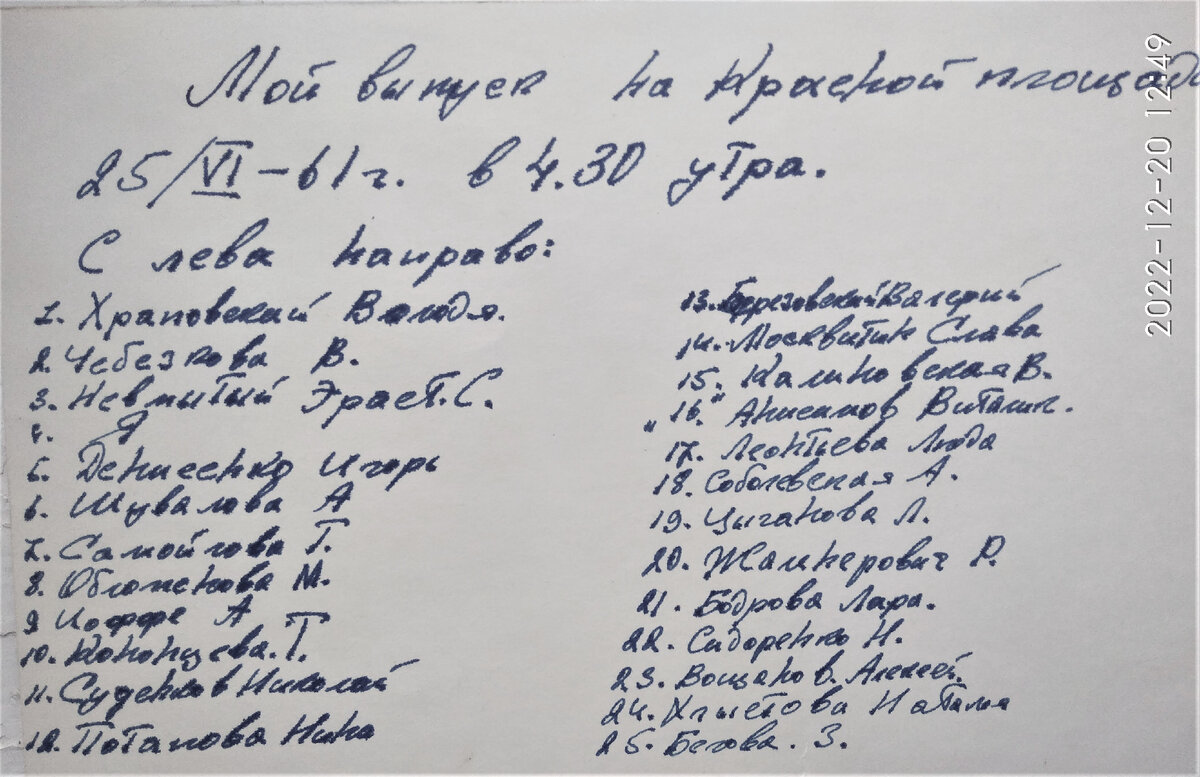 Мой выпуск на Красной площади
25/VI-61г. в 4.30 утра.
С лева направо:
1. Храповский Володя.
2. Чебезкова В.
3. Невмытый Эраст.С.
4. Я
5. Денисенко Игорь
6. Шувалова А
7. Самойлова Т.
8. Обложенова М.
9 Иоффе А
10. Кононцева.Т.
11. Суденков Николай
12. Потапова Нина
13. Березовский Валерий
14. Москвитин Слава
15. Калиновская В.
"16." Анисимов Виталик.
17. Леонтьева Люда
18. Соболевская А.
19. Цыганова Л.
20. Жамнерович Р.
21. Бодрова Лара.
22. Сидоренко Н.
23. Вощанов. Алексей.
24. Хлыстова Наташа
25. Бегова. З.
2022-12-20 12:49